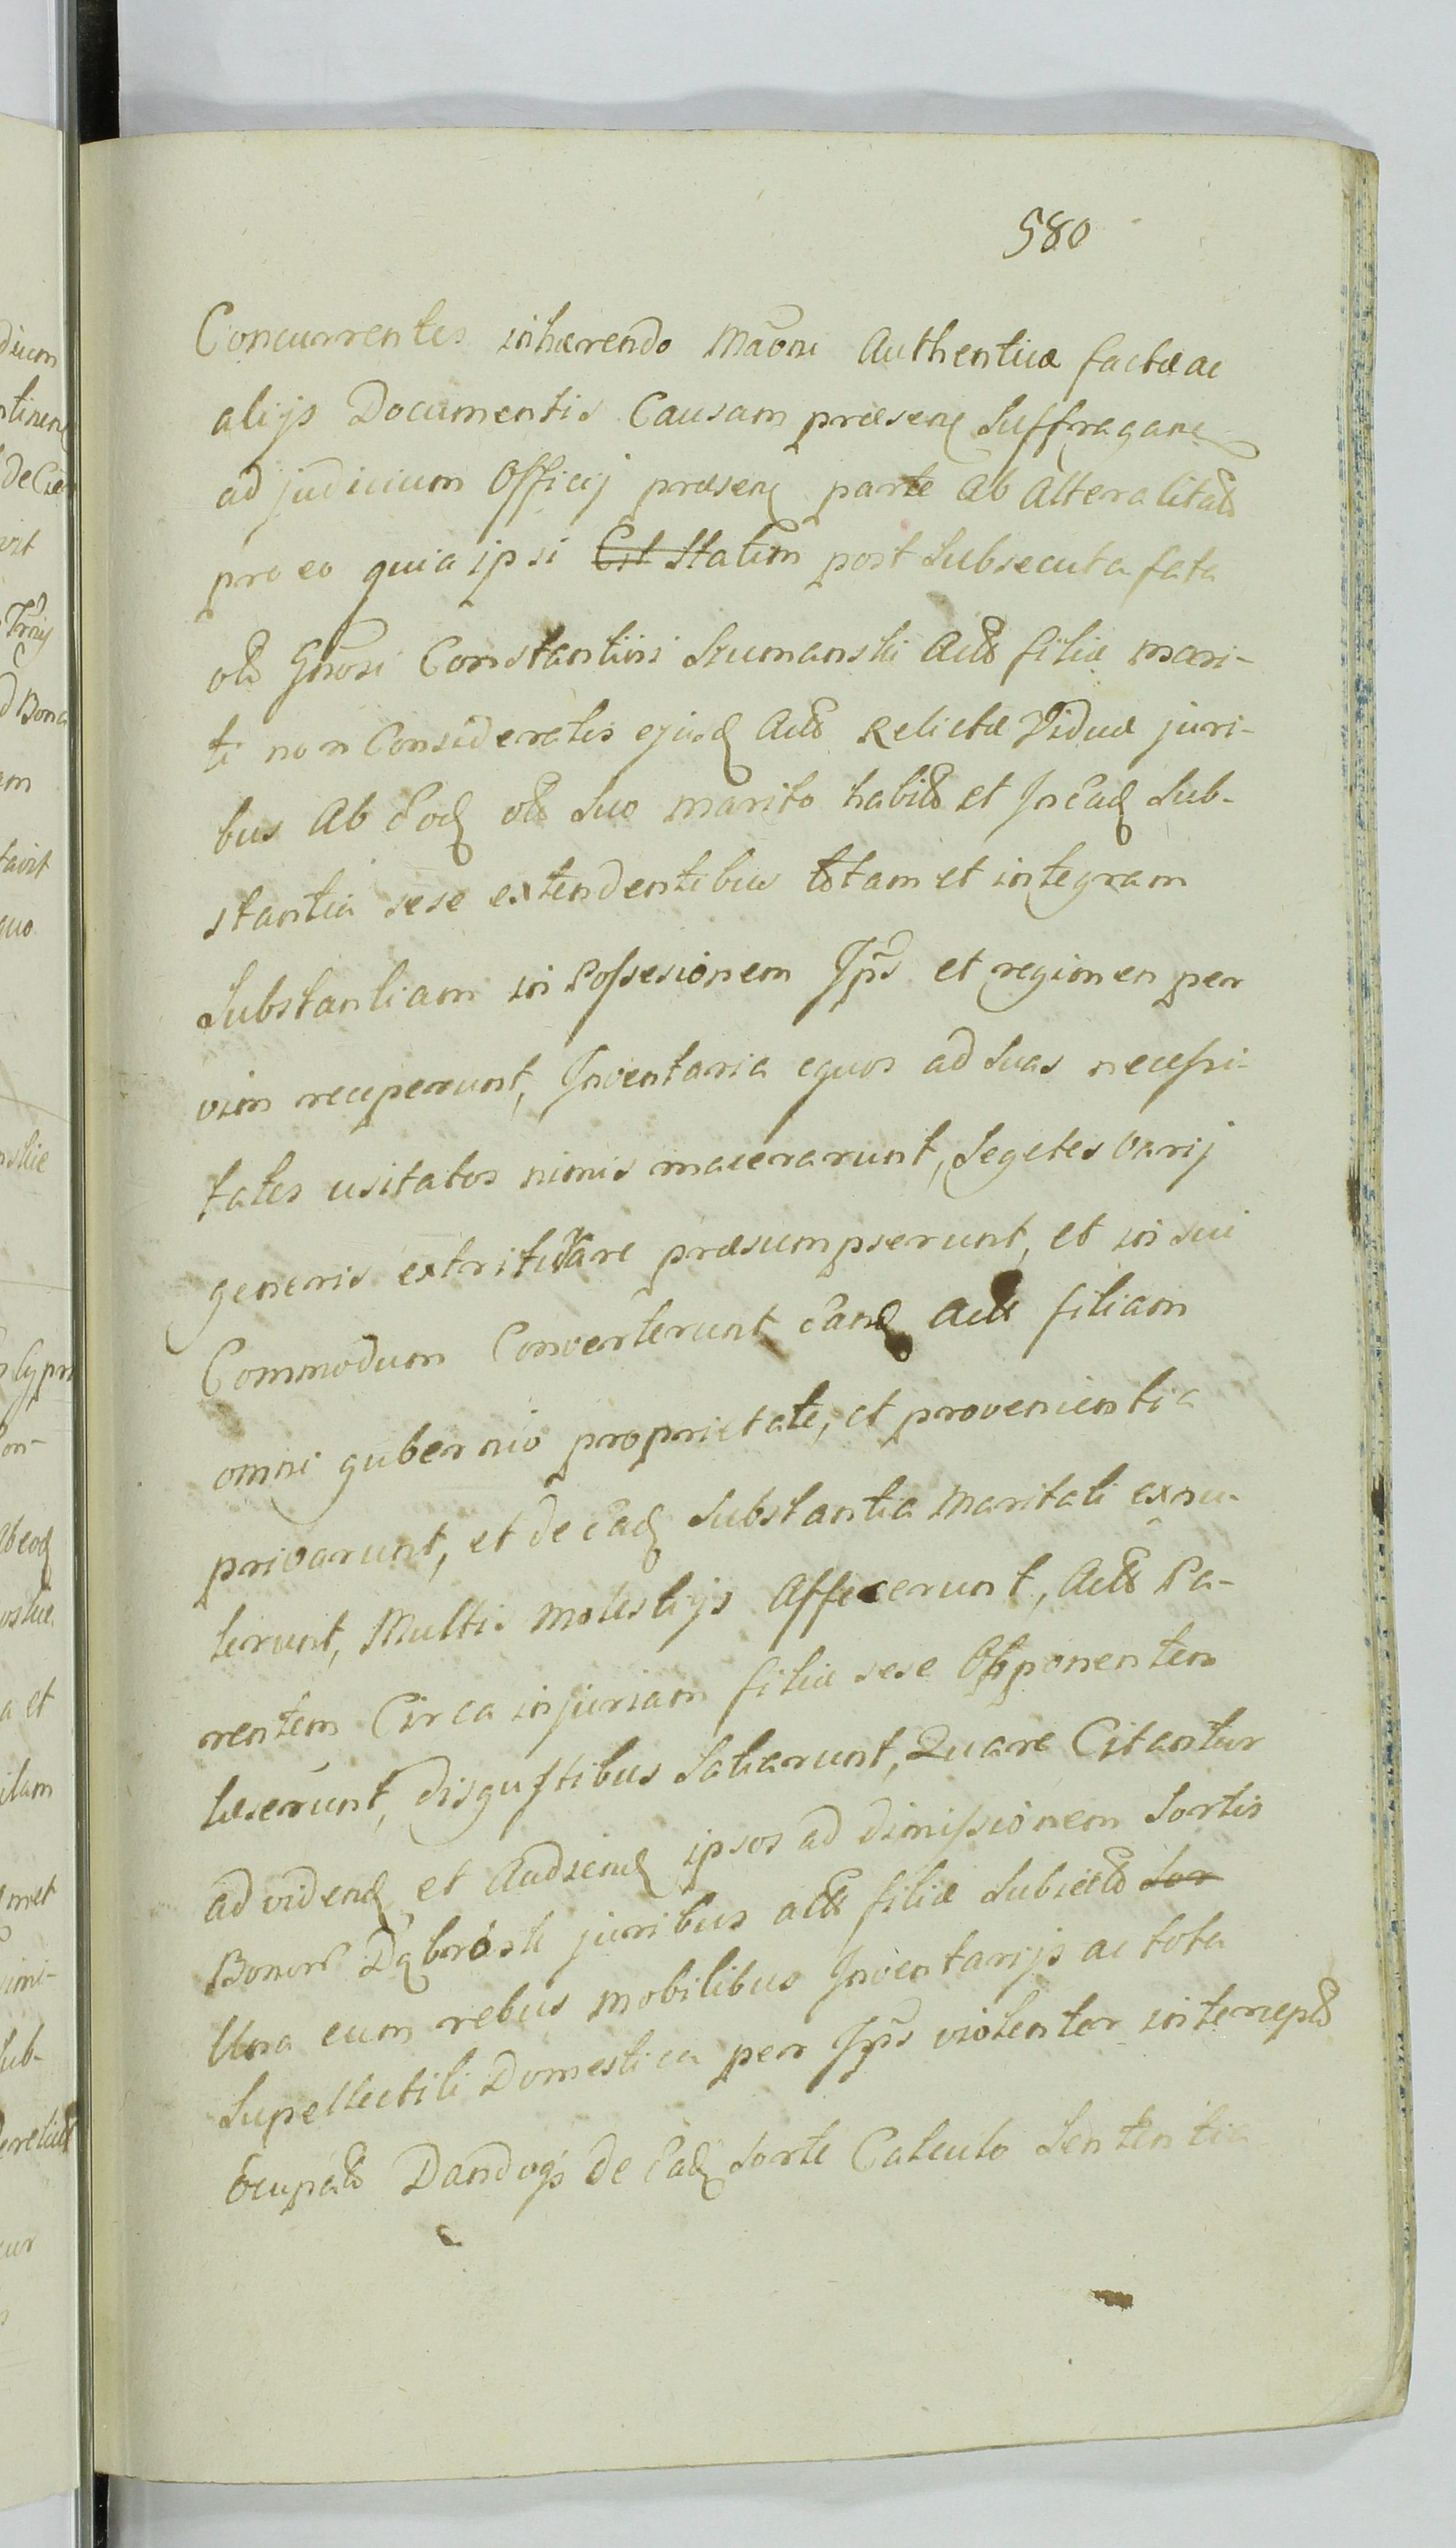 580
Concurrentes inhærendo Mãoni Authenticæ factæ ac
alijs Documentis Causam præsen Suffragan
ad judicium Officij præsen parte ab Altera Citat
pro eo quia ipsi Cit Statim post Subsecuta fata
ol Gñosi Constantini Szumanski Act filiæ mari-
ti non Consideratis ejusd Act Relictæ Viduæ juri-
bus Ab Eod ol Suo marito habit et In Ead Sub-
stantia sese extendentibus totam et integram
Substantiam in Possesionem Ips et regimen per
vim receperunt, Inventaria equos ad Suas necessi-
tates usitatos nimis macerarunt, Segetes varij
generis extriturare præsumpserunt, et in sui
Commodum Converterunt Eand Act filiam
omni gubernio proprietate, et provenientia
privarunt, et de Ead Substantia Maritali exru-
serunt, Multis Molestijs Affecerunt, Act Pa-
rentem Circa injuriam filiæ sese Opponentem
læserunt, disgustibus Satiarunt, Quare Citantur
ad vidend et Audiend ipsos ad dimissionem Sortis
Bonor Dąbrosk juribus act filiæ Subject Sor
Una cum rebus mobilibus Inventarijs ac tota
Supellectili Domestica per Ips violenter intercept
Occupat Dandoqs de Ead Sorte Calculo Sententia